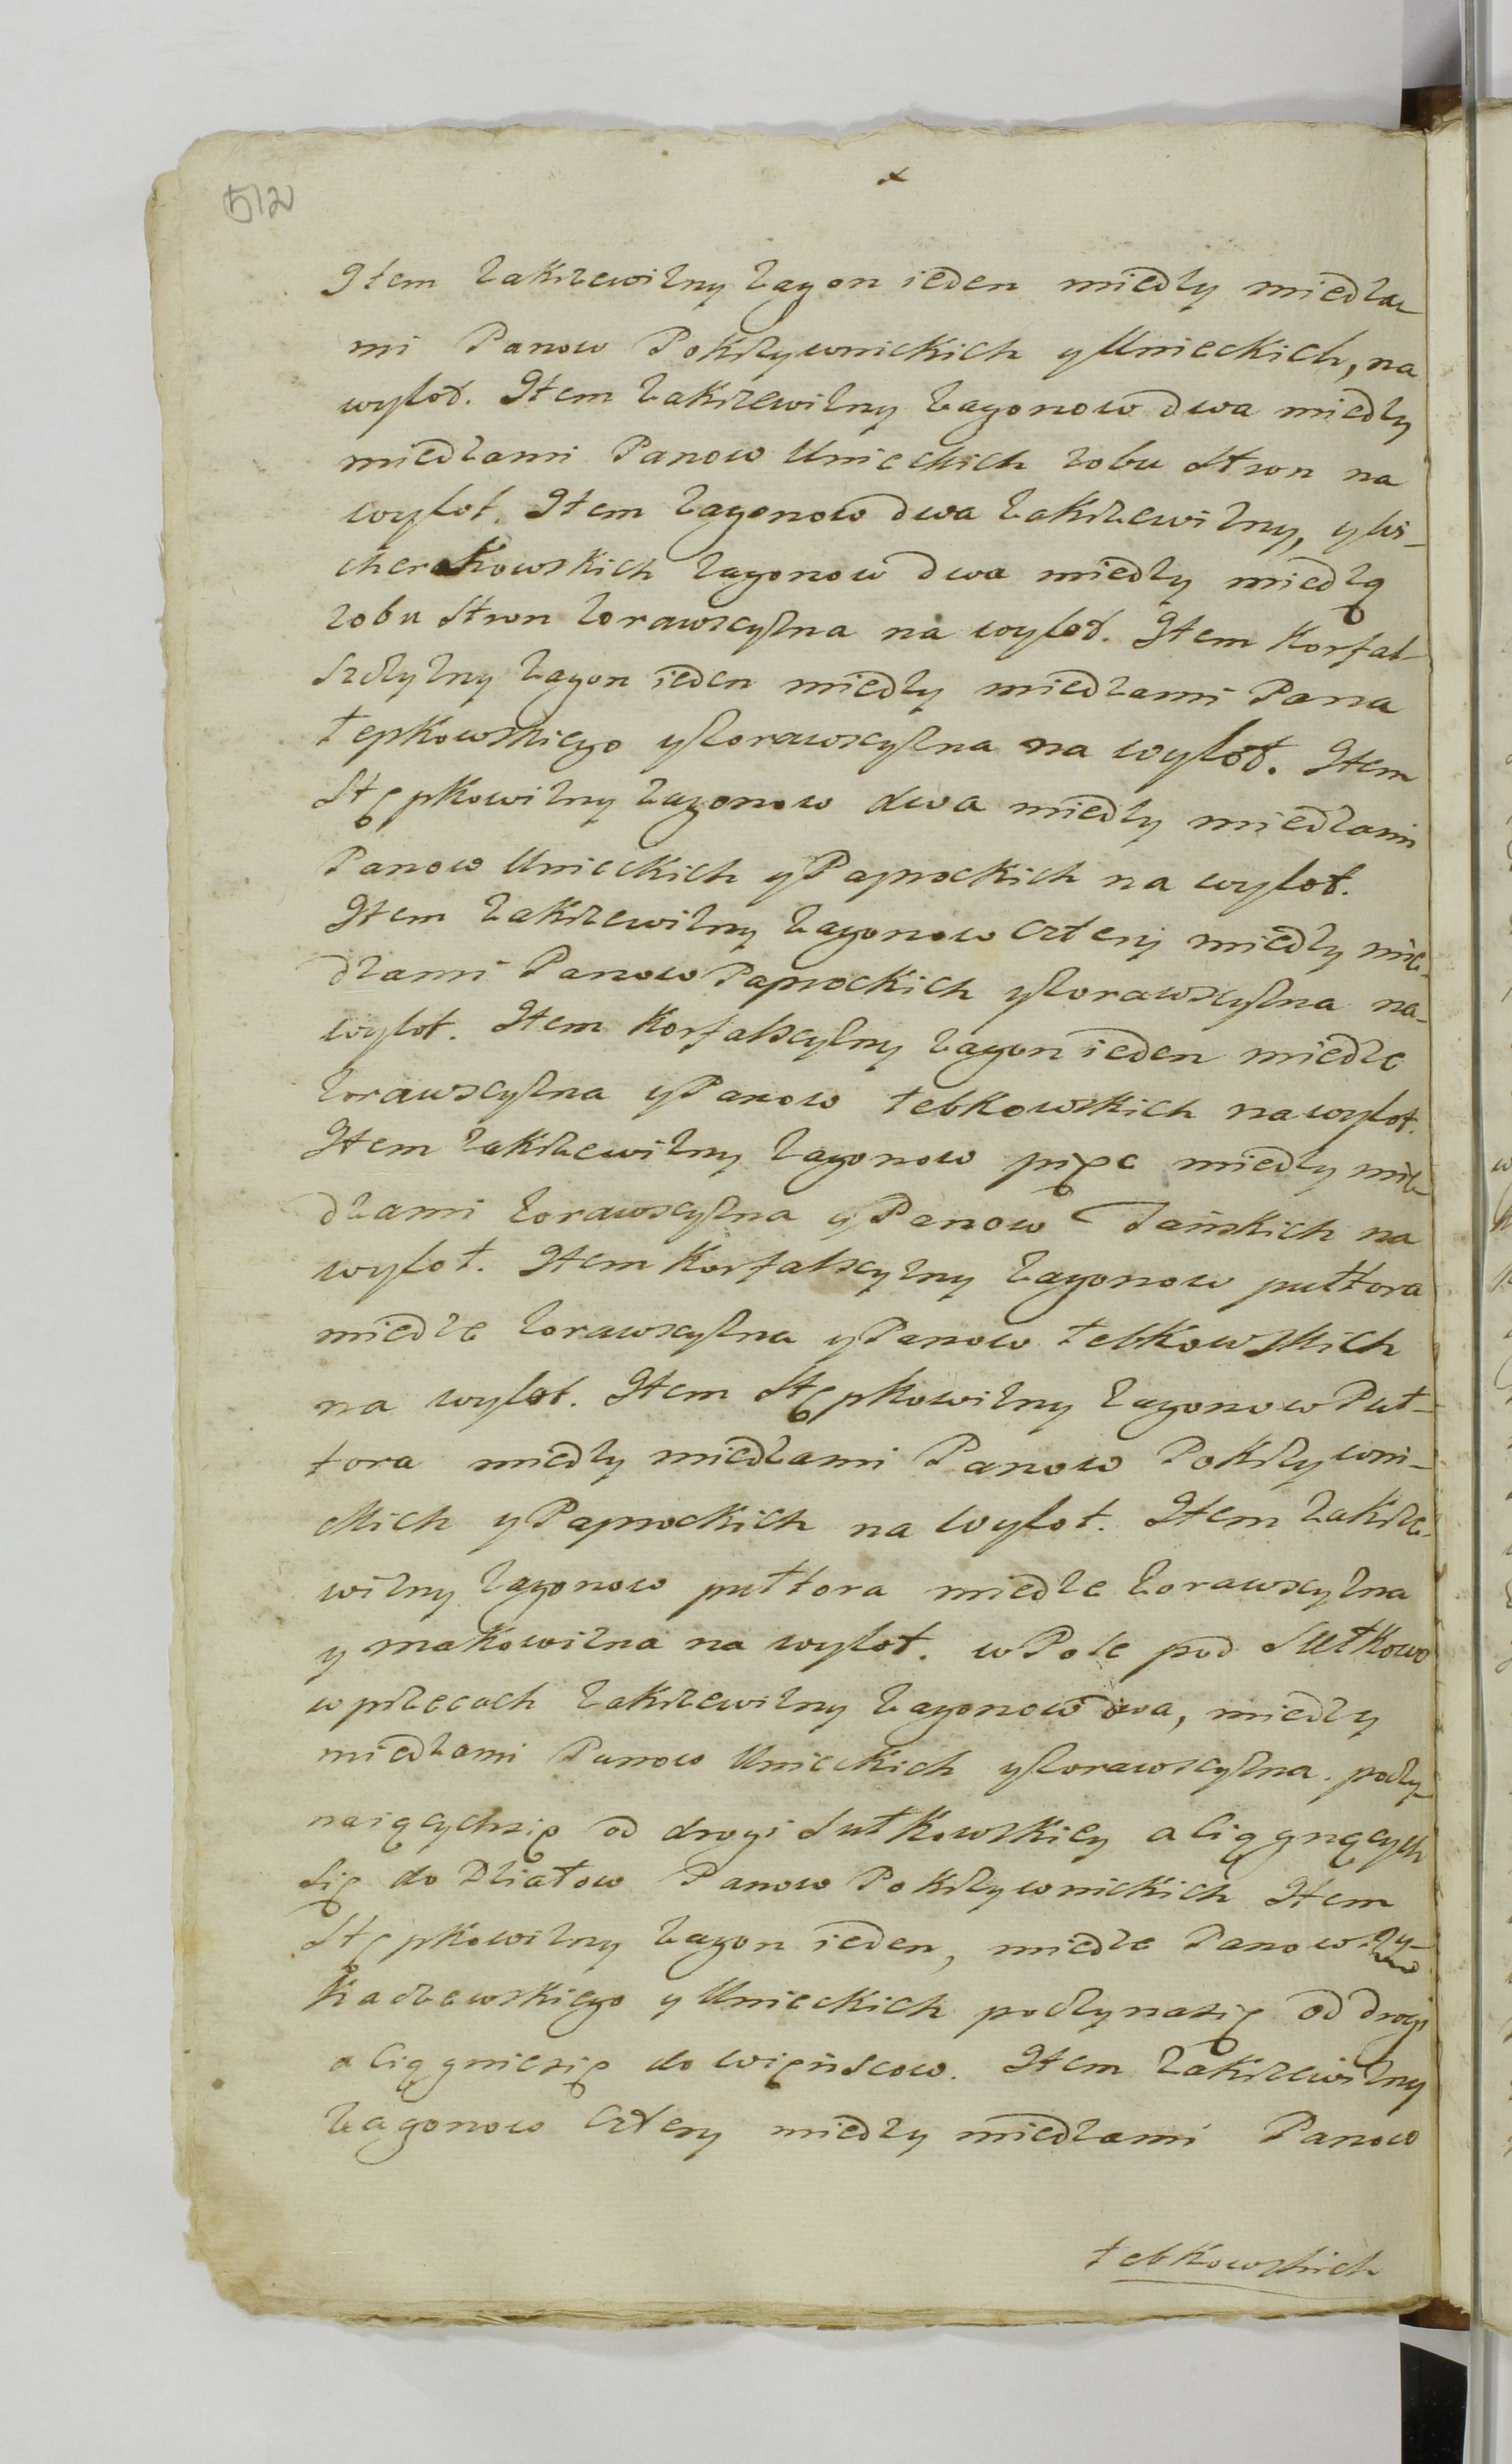 512
x
Item Zakrzewizny Zagon ieden miedzy miedza-
mi Panow Pokrzywnickich y Unieckich, na
wylot. Item Zakrzewizny Zagonow dwa miedzy
miedzami Panow Unieckich zobu stron na
wylot. Item Zagonow dwa Zakrzewizny, y Wi-
cherskowskich Zagonow dwa miedzy miedzą
zobu stron Zorawszyzna na wylot. Item Korfal-
szczyzny Zagon ieden miedzy miedzami Pana
Łepkowskiego y Zorawscyzna na wylot. Item
Stępkowizny Zagonow dwa miedzy miedzami
Panow Unieckich y Paprockich na wylot.
Item Zakrzewizny Zagonow cztery miedzy mie-
dzami Panow Paprockich y Zorawscyzna na-
wylot. Item Korfalscyzny Zagon ieden miedze
Zorawscyzna y Panow Łebkowskich na wylot.
Item Zakrzewizny Zagonow pięc miedzy mie-
dzami Zorawscyzna y Panow Tańskich na
wylot. Item Korfalscyzny Zagonow pułtora
miedze Zorawscyzna y Panow Łebkowskich
na wylot. Item Stępkowizny Zagonow Puł-
tora miedzy miedzami Panow Pokrzywni-
ckich y Paprockich na wylot. Item Zakrze-
wizny Zagonow pułtora miedze Zorawscyzna
y makowizna na wylot. w Pole pod Sułkowo
w przecach Zakrzewizny Zagonow dwa, miedzy
miedzami Panow Unieckich y Zorawscyzna. poczy-
naiących się od drogi Sułkowskiey a ciągnących
się do Działow Panow Pokrzywnickich Item
Stępkowizny Zagon ieden, miedze Panow
Kaczewskiego y Unieckich poczyna się od drogi
a ciągnie się do więńscow. Item Zakrzewizny
Zagonow cztery miedzy miedzami Panow
Łebkowskich